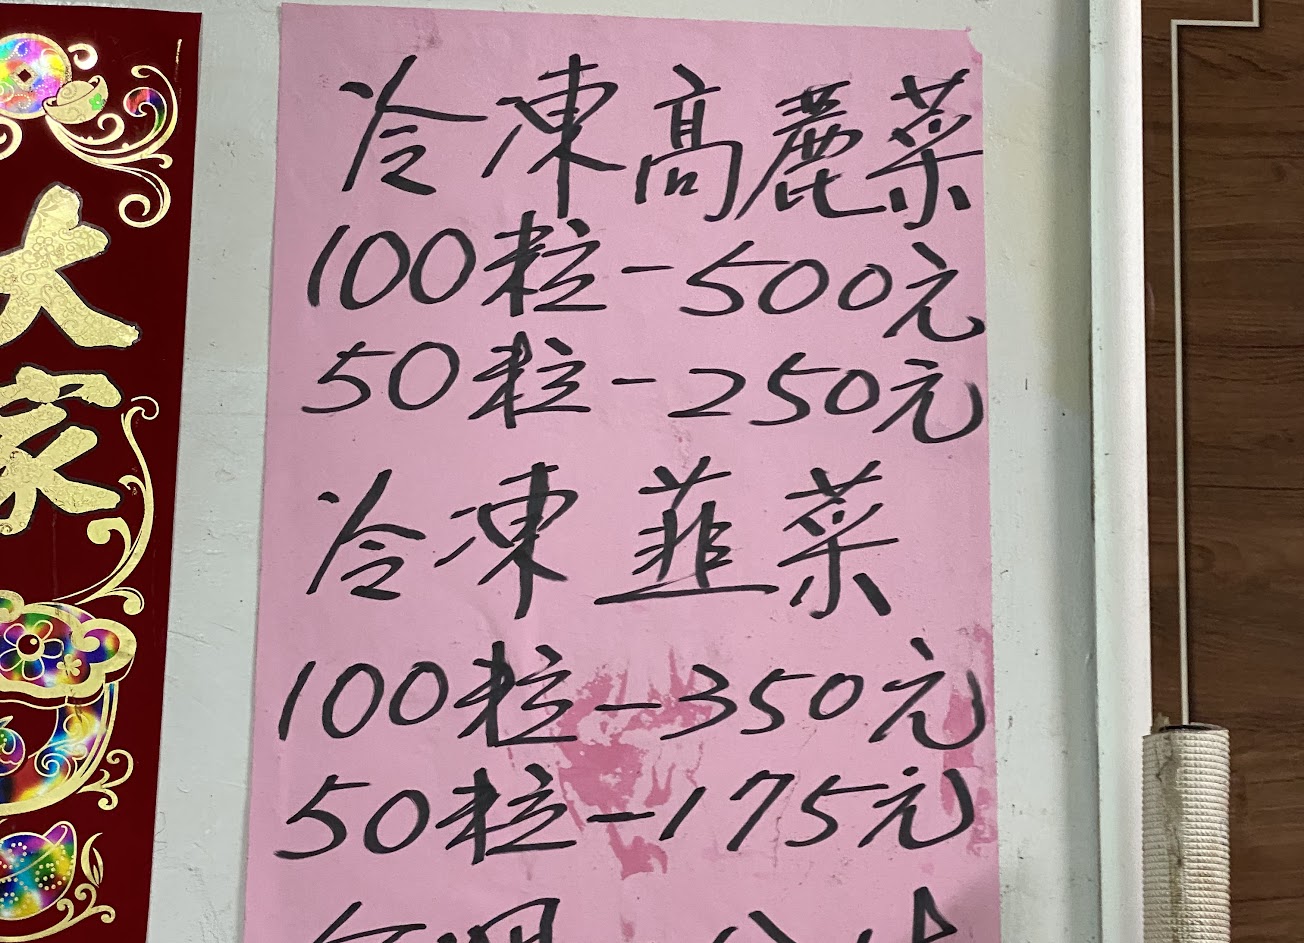 大家
冷凍高麗菜
100粒-500元
50粒-250元
冷凍韮菜
100粒-350元
50粒-175元